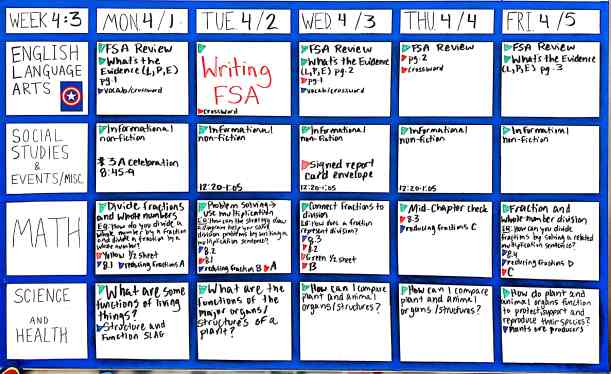 WEEK 4:3
MON. 4/1
TUE. 4/2
WED. 4/3
THU. 4/4
FRI. 4/5
ENGLISH
LANGUAGE
ARTS
FSA Review
What's the
Evidence (L,P,E)
pg. 1
vocab/crossword
Writing
FSA
crossword
FSA Review
What's the Evidence
(L,P,E) pg. 2
pg. 1
vocab/crossword
FSA Review
pg. 2
crossword
FSA Review
What's the Evidence
(L,P,E) pg. 3
SOCIAL
STUDIES
&
EVENTS/MISC.
Informational
non-fiction
$ 3 A celebration
8:45-9
Informational
non-fiction
12:20-1:05
Informational
non-fiction
Signed report
card envelope
12:20-1:05
Informational
non-fiction
12:20-1:05
Informational
non-fiction
MATH
Divide fractions
and whole numbers
EQ: How do you divide a
whole number by a fraction
and divide a fraction by a
whole number?
Yellow 1/2 sheet
8.1 reducing fractions A
Problem solving →
use multiplication
EQ: How can the strategy draw
a diagram help you solve
division problems by writing a
multiplication sentence?
8.2
8.1
reducing fraction B A
Connect fractions to
division
EQ: How does a fraction
represent division?
8.3
8.2
Green 1/2 sheet
B
Mid-Chapter check
8.3
reducing fractions C
Fraction and
whole number division
EQ: How can you divide
fractions by solving a related
multiplication sentence?
8.4
reducing fractions D
C
SCIENCE
AND
HEALTH
What are some
functions of living
things?
Structure and
Function SLAG
What are the
functions of the
major organs/
structures of a
plant?
How can I compare
plant and animal
organs/structures?
How can I compare
plant and animal
organs/structures?
How do plant and
animal organs function
to protect, support and
reproduce their species?
Plants are producers